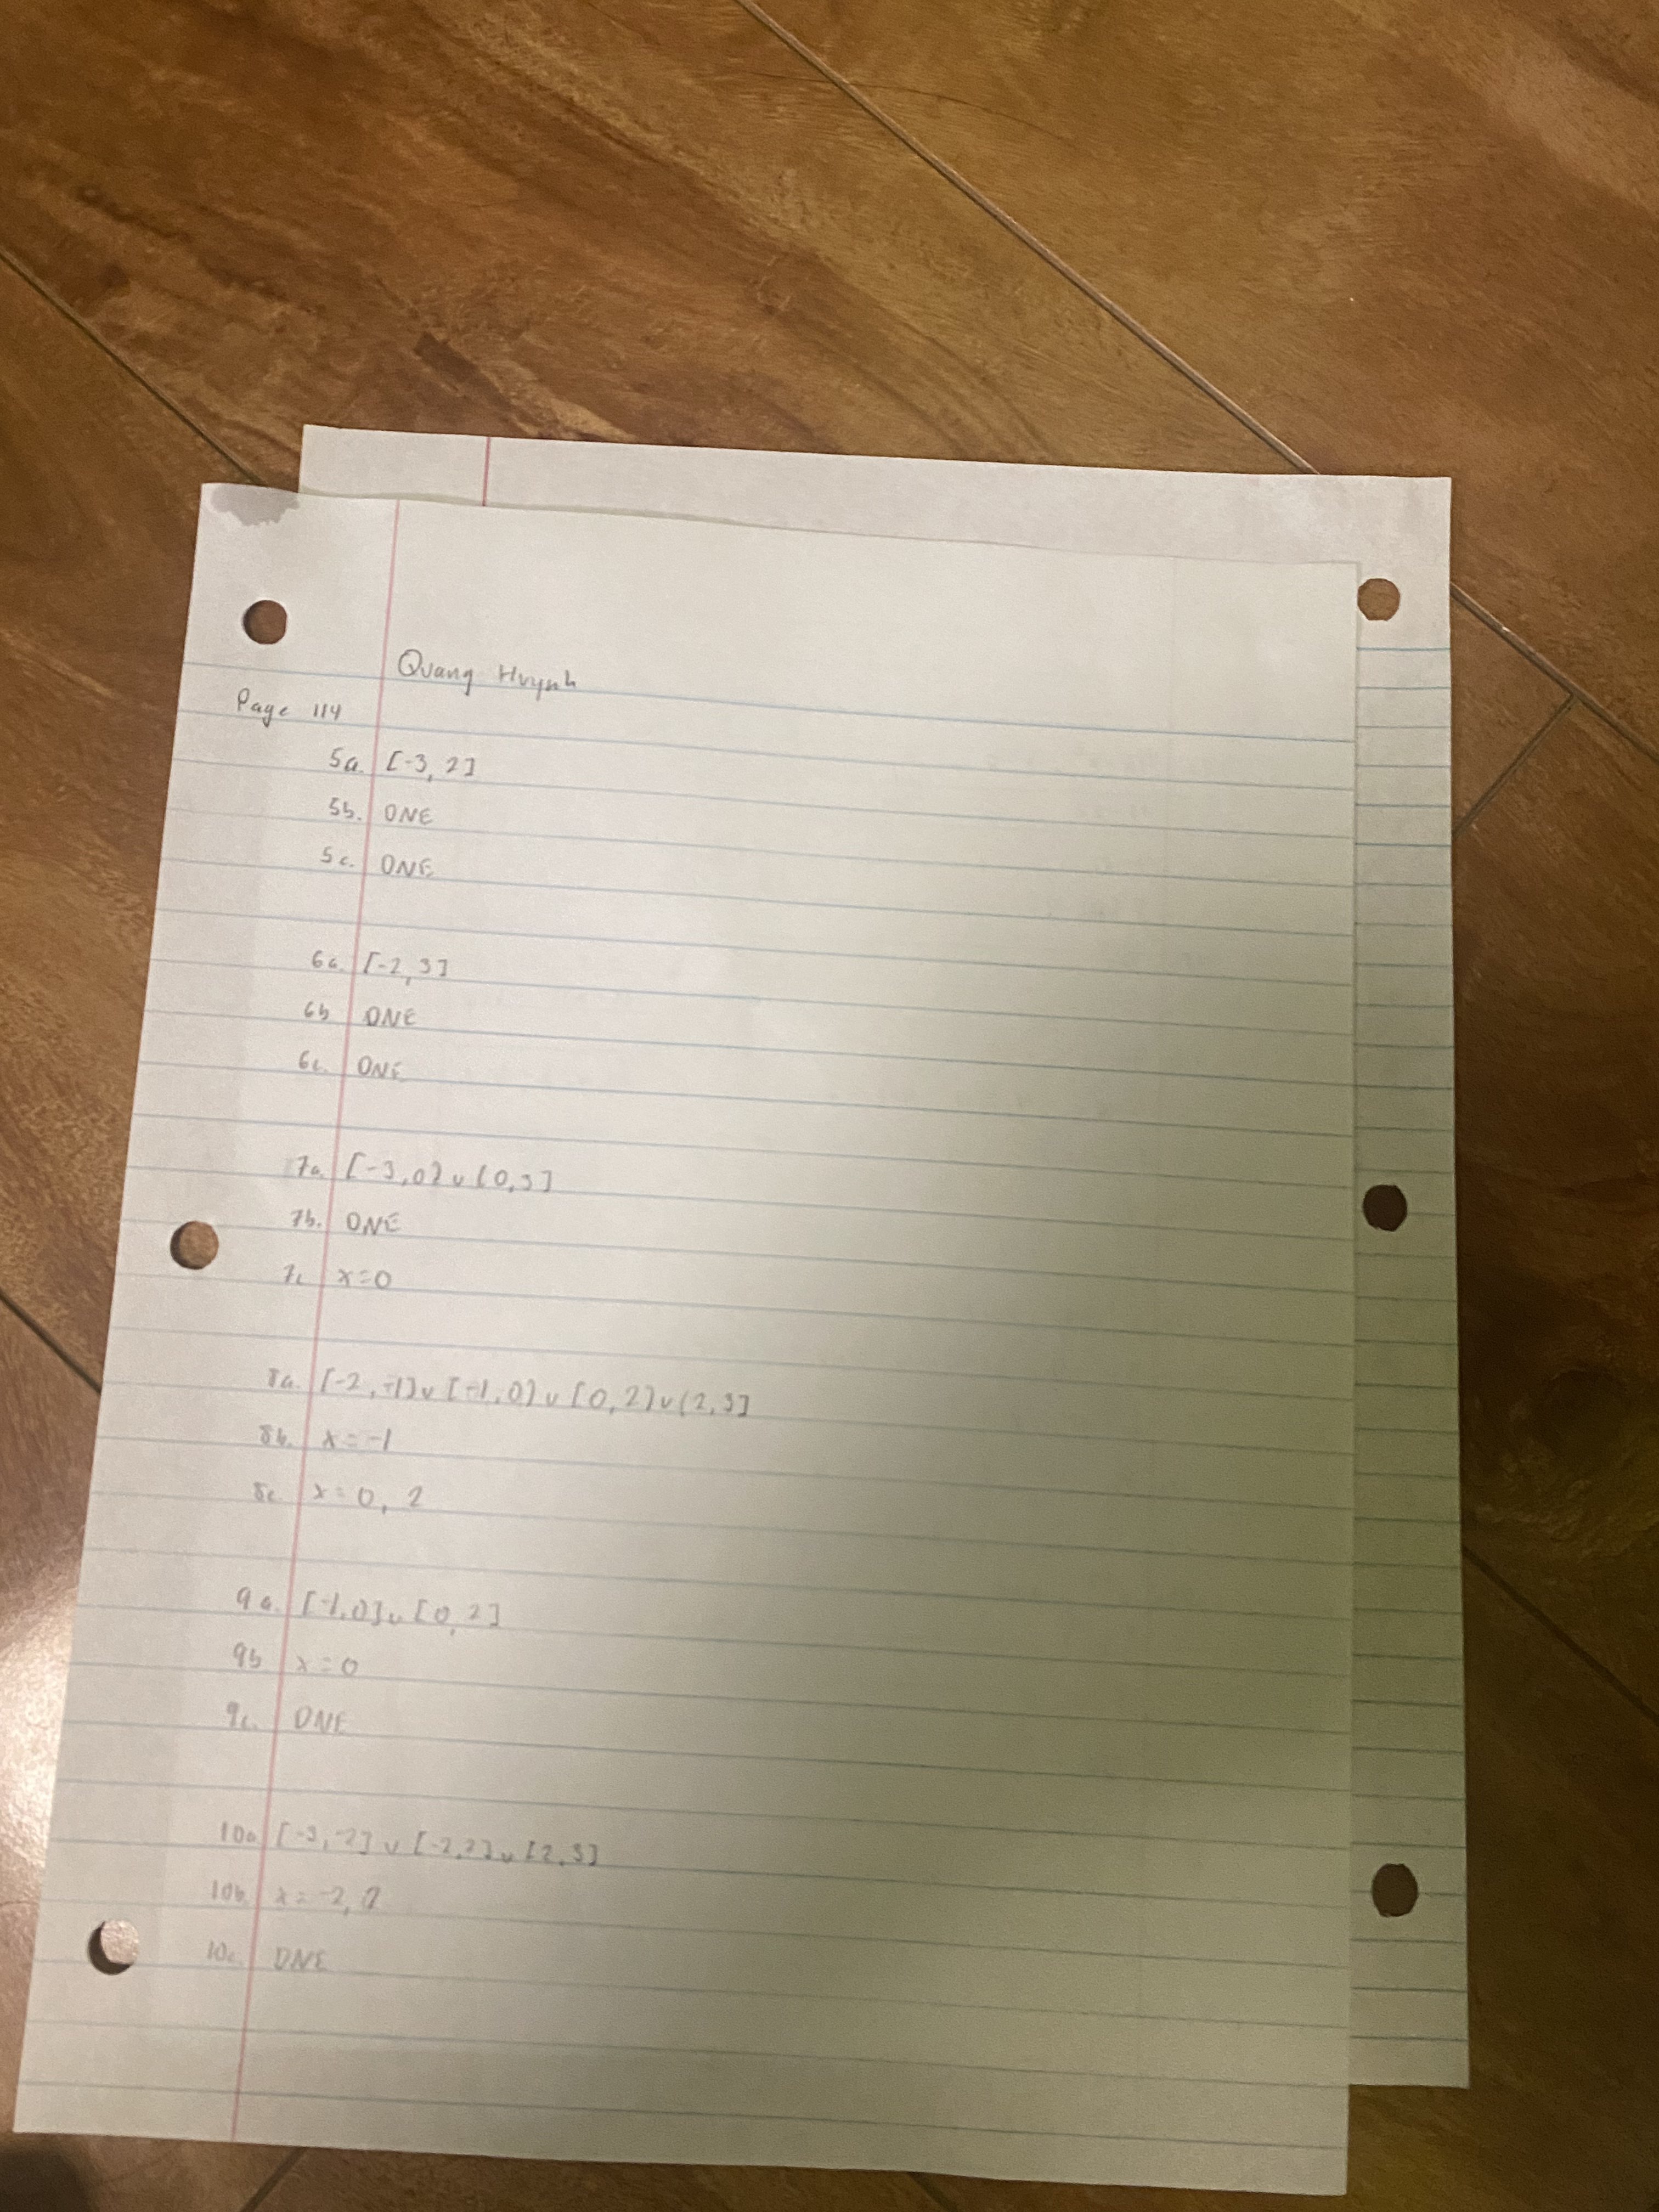 Quang Huynh
Page 114
5a. [-3, 2]
5b. DNE
5c. DNE
6a. [-2, 3]
6b DNE
6c. DNE
7a. [-3,0) ∪ (0,3]
7b. DNE
7c x=0
8a. [-2,-1] ∪ [-1,0) ∪ [0,2) ∪ (2,3]
8b. x=-1
8c x=0, 2
9a. [-1,0] ∪ [0,2]
9b x=0
9c. DNE
10a [-3,-2] ∪ [-2,2] ∪ [2,3]
10b. x=-2, 2
10c. DNE